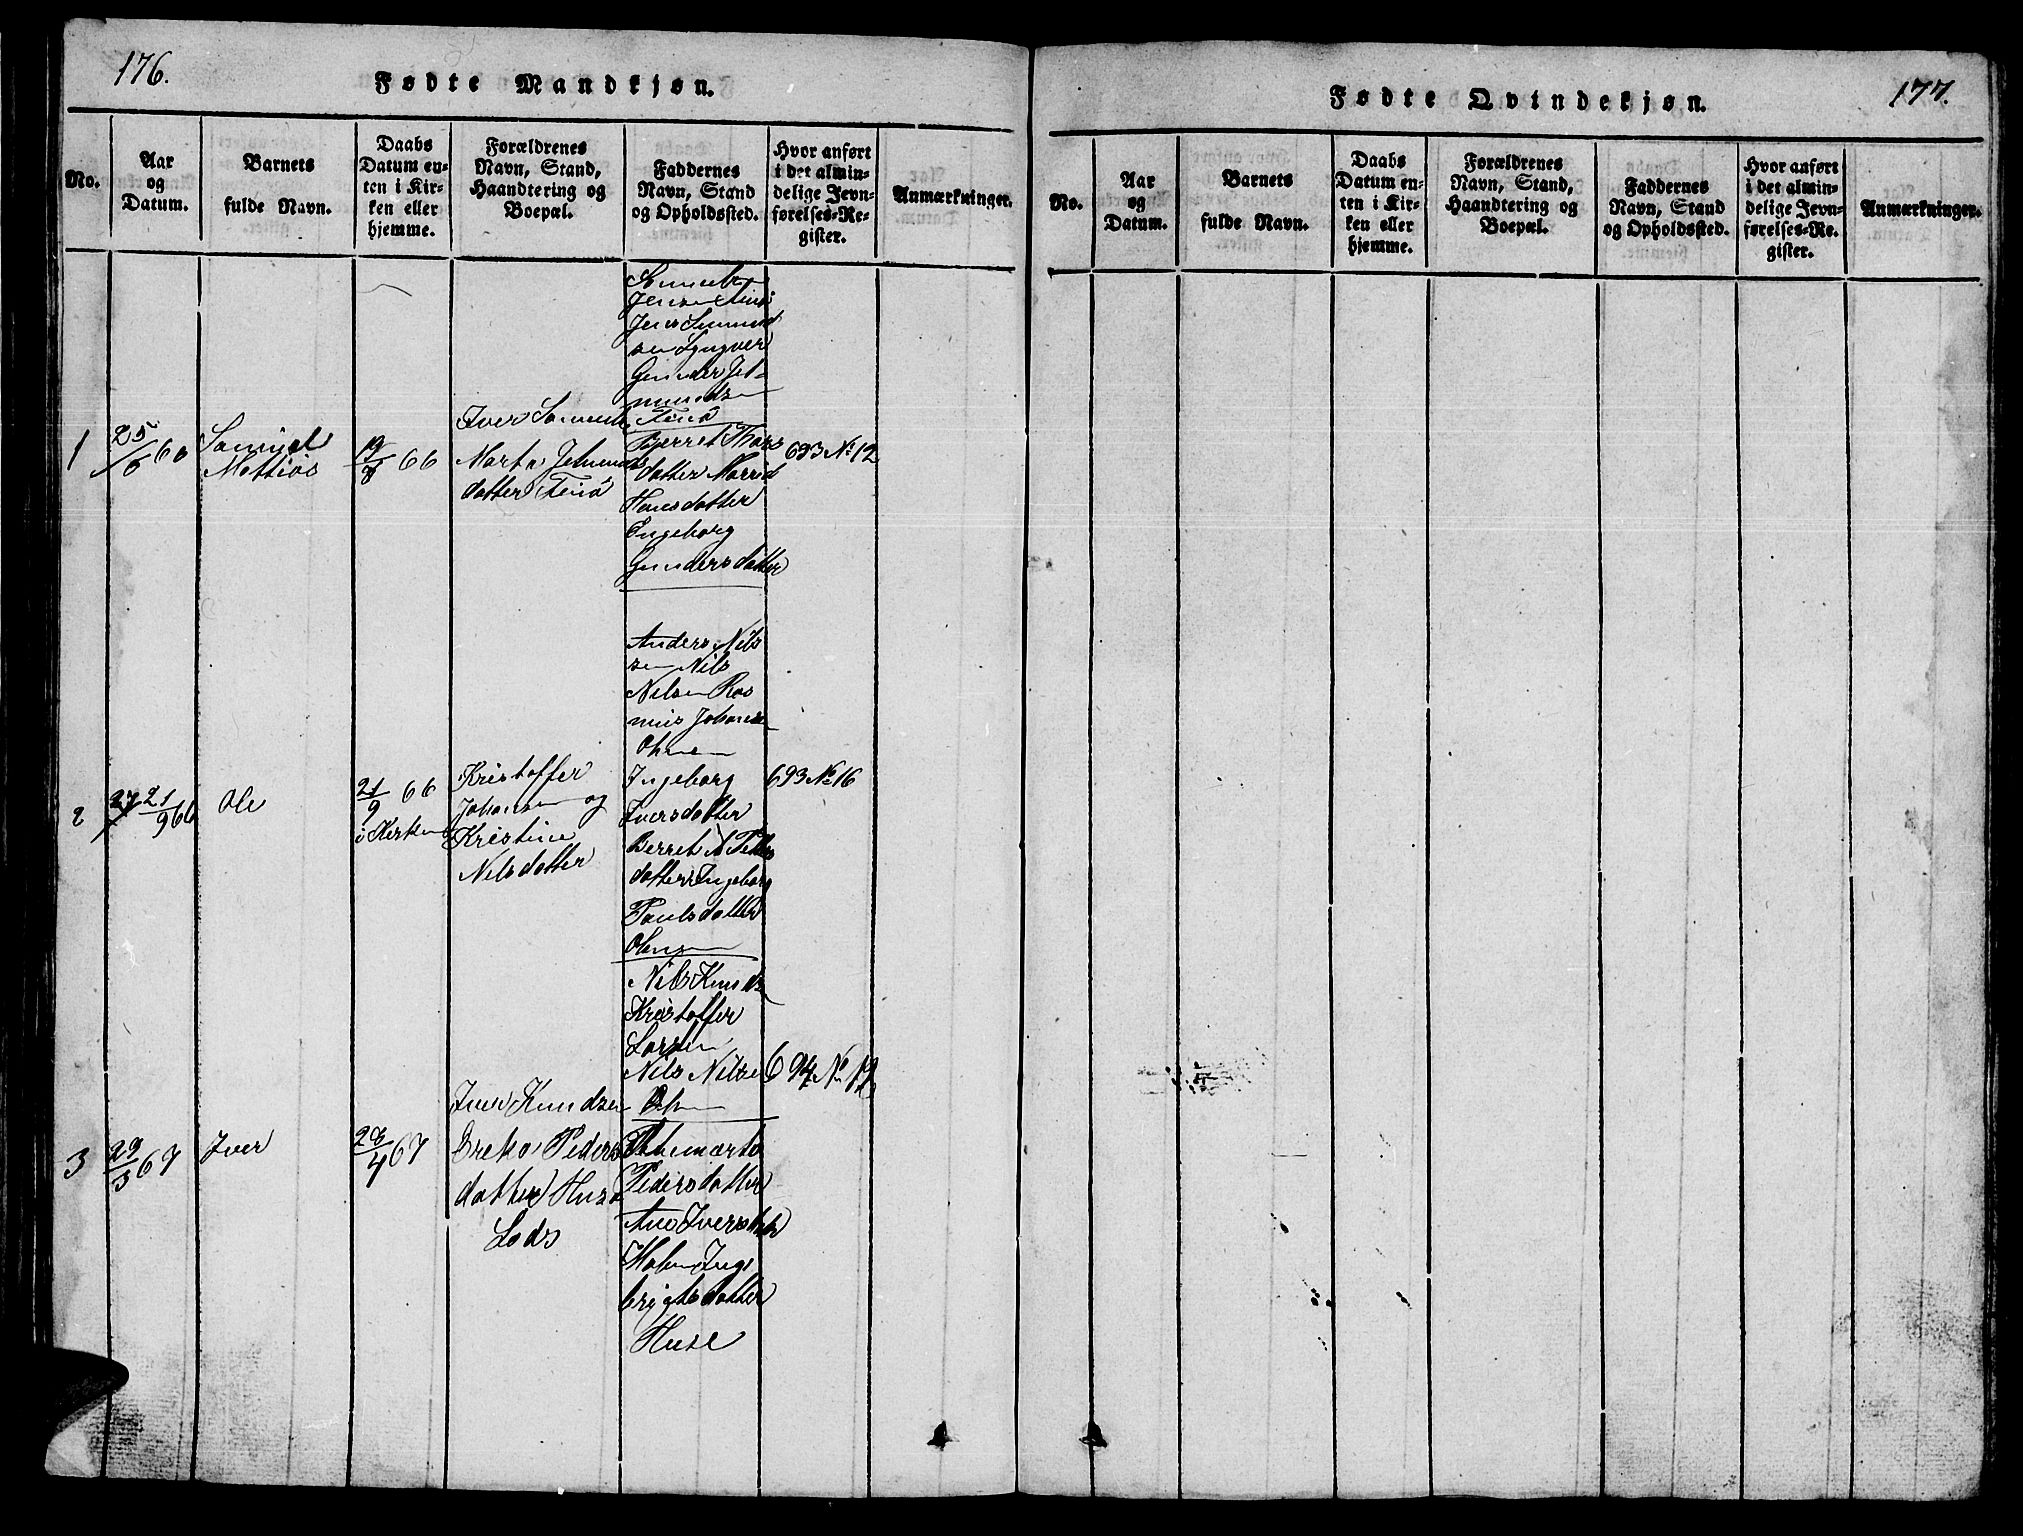 176.
Fødte Mandkjøn.
No.
Aar
og
Datum.
Barnets
fulde Navn.
Daabs
Datum en-
ten i Kir-
ken eller
hjemme.
Forældrenes
Navn, Stand,
Haandtering og
Boepæl.
Faddernes
Navn, Stand
og Opholdssted.
Hvor anført
i det almin-
delige Jevn-
førelses-Re-
gister.
Anmærkninger.
1
25/6 66
Samuel
Mattias
19/8 66
Iver
Marta
datter
Jens
Gunder
Berret
datter Marrid
Hansdatter
Ingeborg
Gundersdatter
693 No 12
2
21/9 66
Ole
21/9 66
i Kirken
Kristoffer
Johansen og
Kristine
Nilsdatter
Anders Nils
sen Nils
Nilsen Ras
mus Johansen
Ingeborg
Iversdatter
Berret
datter Ingeborg
Paulsdatter
693 No 16
3
29/3 67
Iver
28/4 67
Iver Knudsen
Peders
datter Huse
Lods
Nils Knuds
Kristoffer
Larsen
Nils Nilsen
Pedersdatter
Ane Iversdatter
Malen Inge
brigtsdatter
Huse
694 No 19
177.
Fødte Qvindekjøn.
No.
Aar
og
Datum.
Barnets
fulde Navn.
Daabs
Datum en-
ten i Kir-
ken eller
hjemme.
Forældrenes
Navn, Stand,
Haandtering og
Boepæl.
Faddernes
Navn, Stand
og Opholdssted.
Hvor anført
i det almin-
delige Jevn-
førelses-Re-
gister.
Anmærkninger.